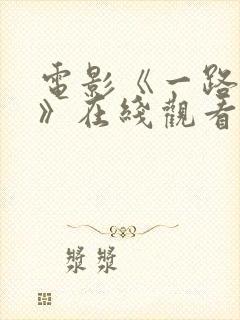 電影《一路
》在綫觀看
漿漿